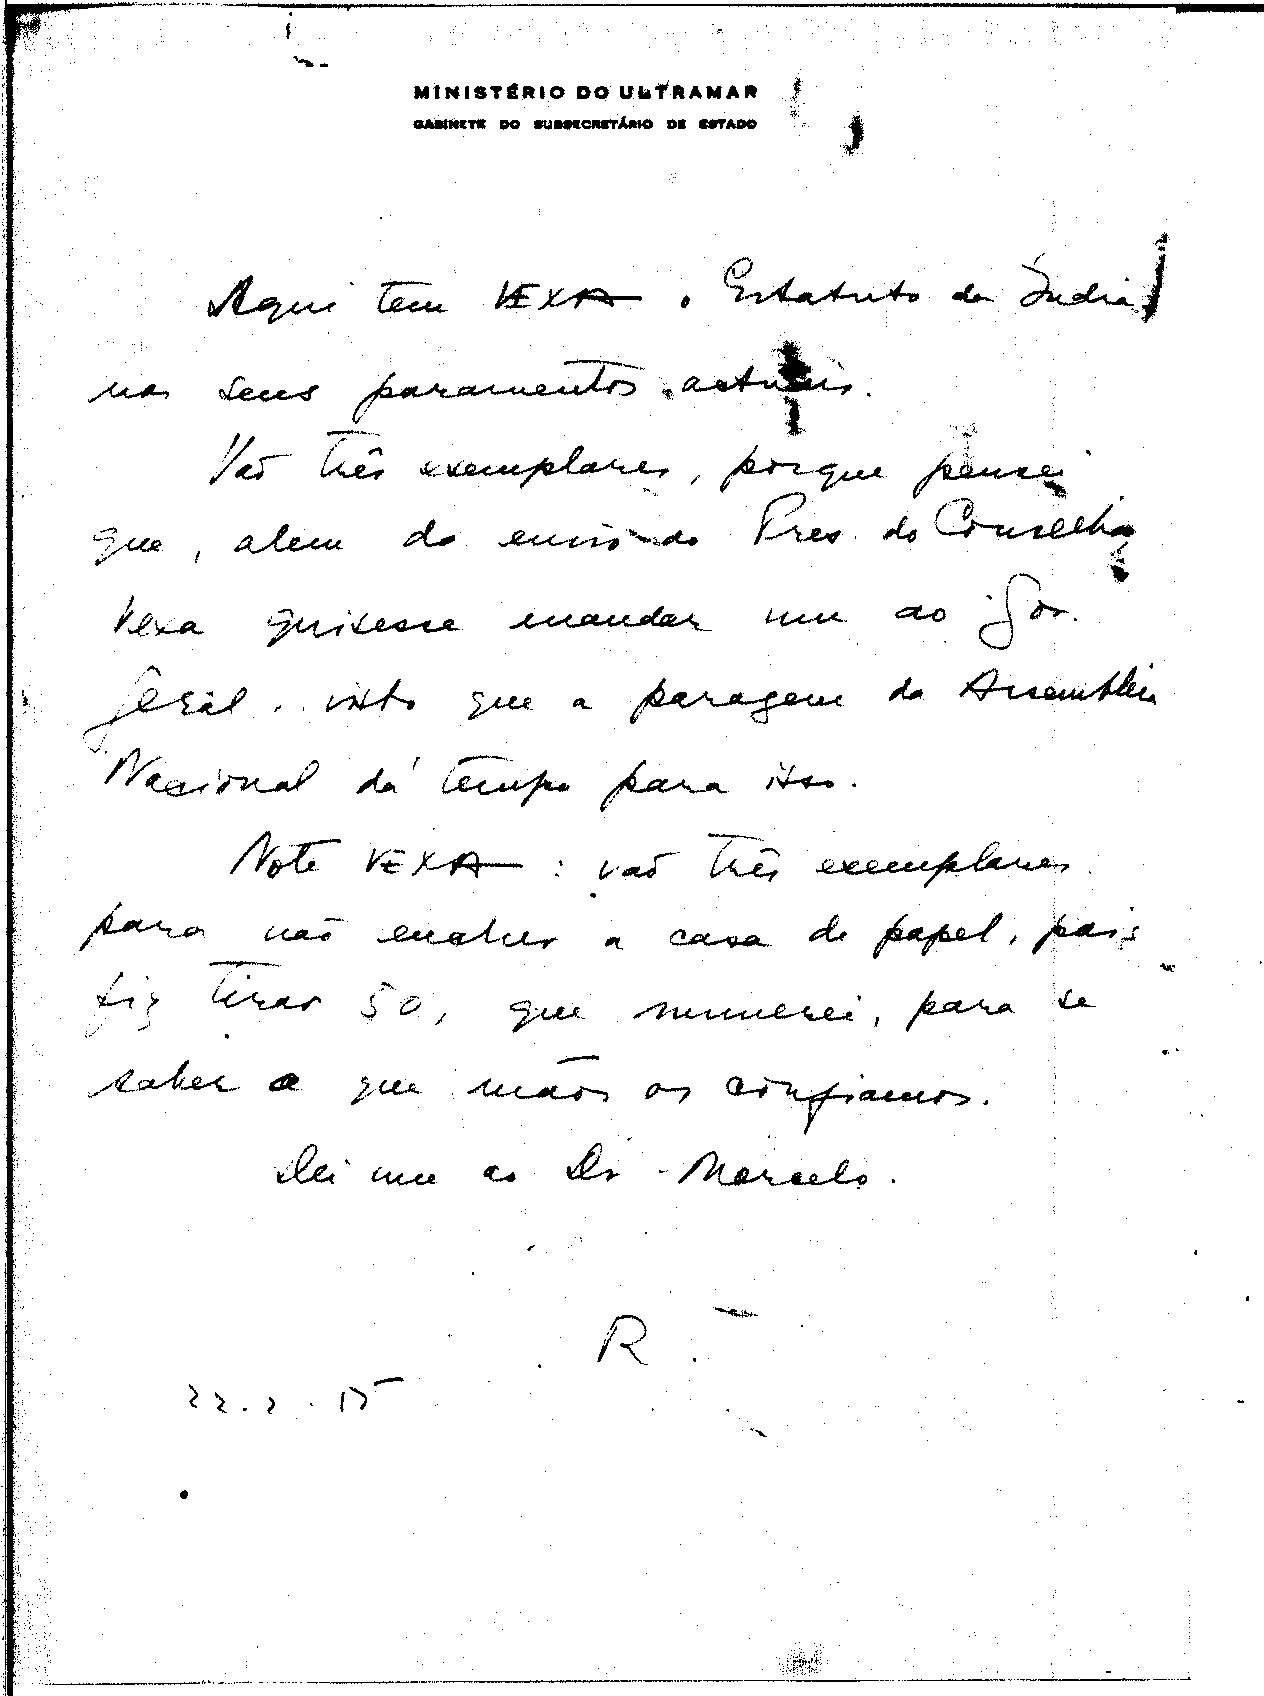 MINISTÉRIO DO ULTRAMAR
GABINETE DO SUBSECRETÁRIO DE ESTADO
Aqui tem VEXA o Estatuto da Índia
nos seus paramentos actuais.
Vão três exemplares, porque pensei
que, alem do envio do Pres. do Conselho
Vexa quisesse mandar um ao Gov.
Geral, visto que a paragem da Assembleia
Nacional dá tempo para isso.
Note VEXA: vão três exemplares
para não encher a casa de papel, pois
fiz tirar 50, que numerei, para se
saber a que mãos os confiamos.
Dei um ao Dr. Marcelo.
R
22.2.55